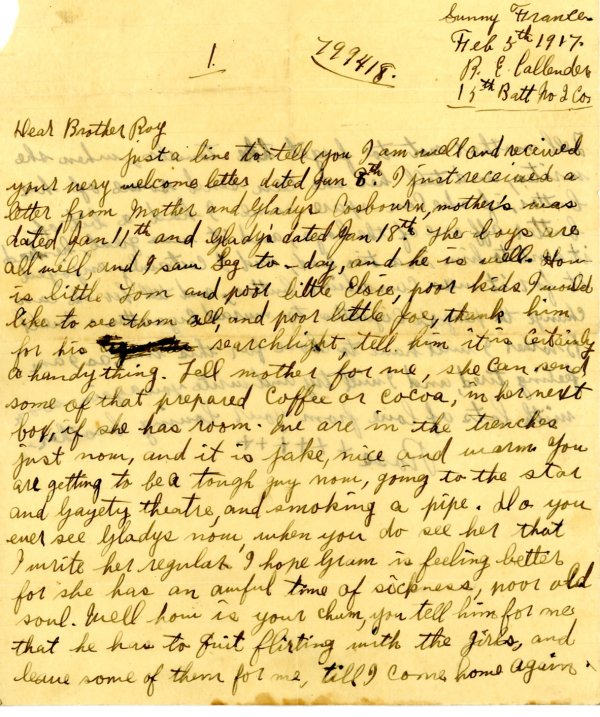 Sunny France
Feb 5th 1917.
1. 799418. R. E. Callender
15th Batt No 2 Co
Dear Brother Roy
just a line to tell you I am well and received
your very welcome letter dated Jan 8th. I just received a
letter from Mother and Gladys Cosbourn, mother's was
dated Jan 11th and Gladys dated Jan 18th. The boys are
all well, and I saw Seg to-day, and he is well. How
is little Tom and poor little Elsie, poor kids I would
like to see them all, and poor little Joe, thank him
for his searchlight, tell him it is certainly
a handy thing. Tell mother for me, she can send
some of that prepared Coffee or cocoa, in her next
box, if she has room. We are in the trenches
just now, and it is jake, nice and warm. You
are getting to be a tough guy now, going to the star
and Gayety theatre, and smoking a pipe. Do you
ever see Gladys now, when you do see her that
I write her regular. I hope Gram is feeling better
for she has an awful time of sickness, poor old
soul. Well how is your chum, you tell him for me
that he has to quit flirting with the girls, and
leave some of them for me, till I come home again.